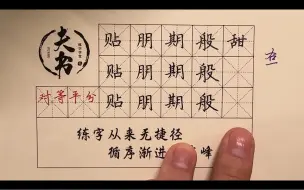 夫书
贴朋期般甜
右
贴朋期般
对等平分 贴朋期般
练字从来无捷径
循序渐进 峰